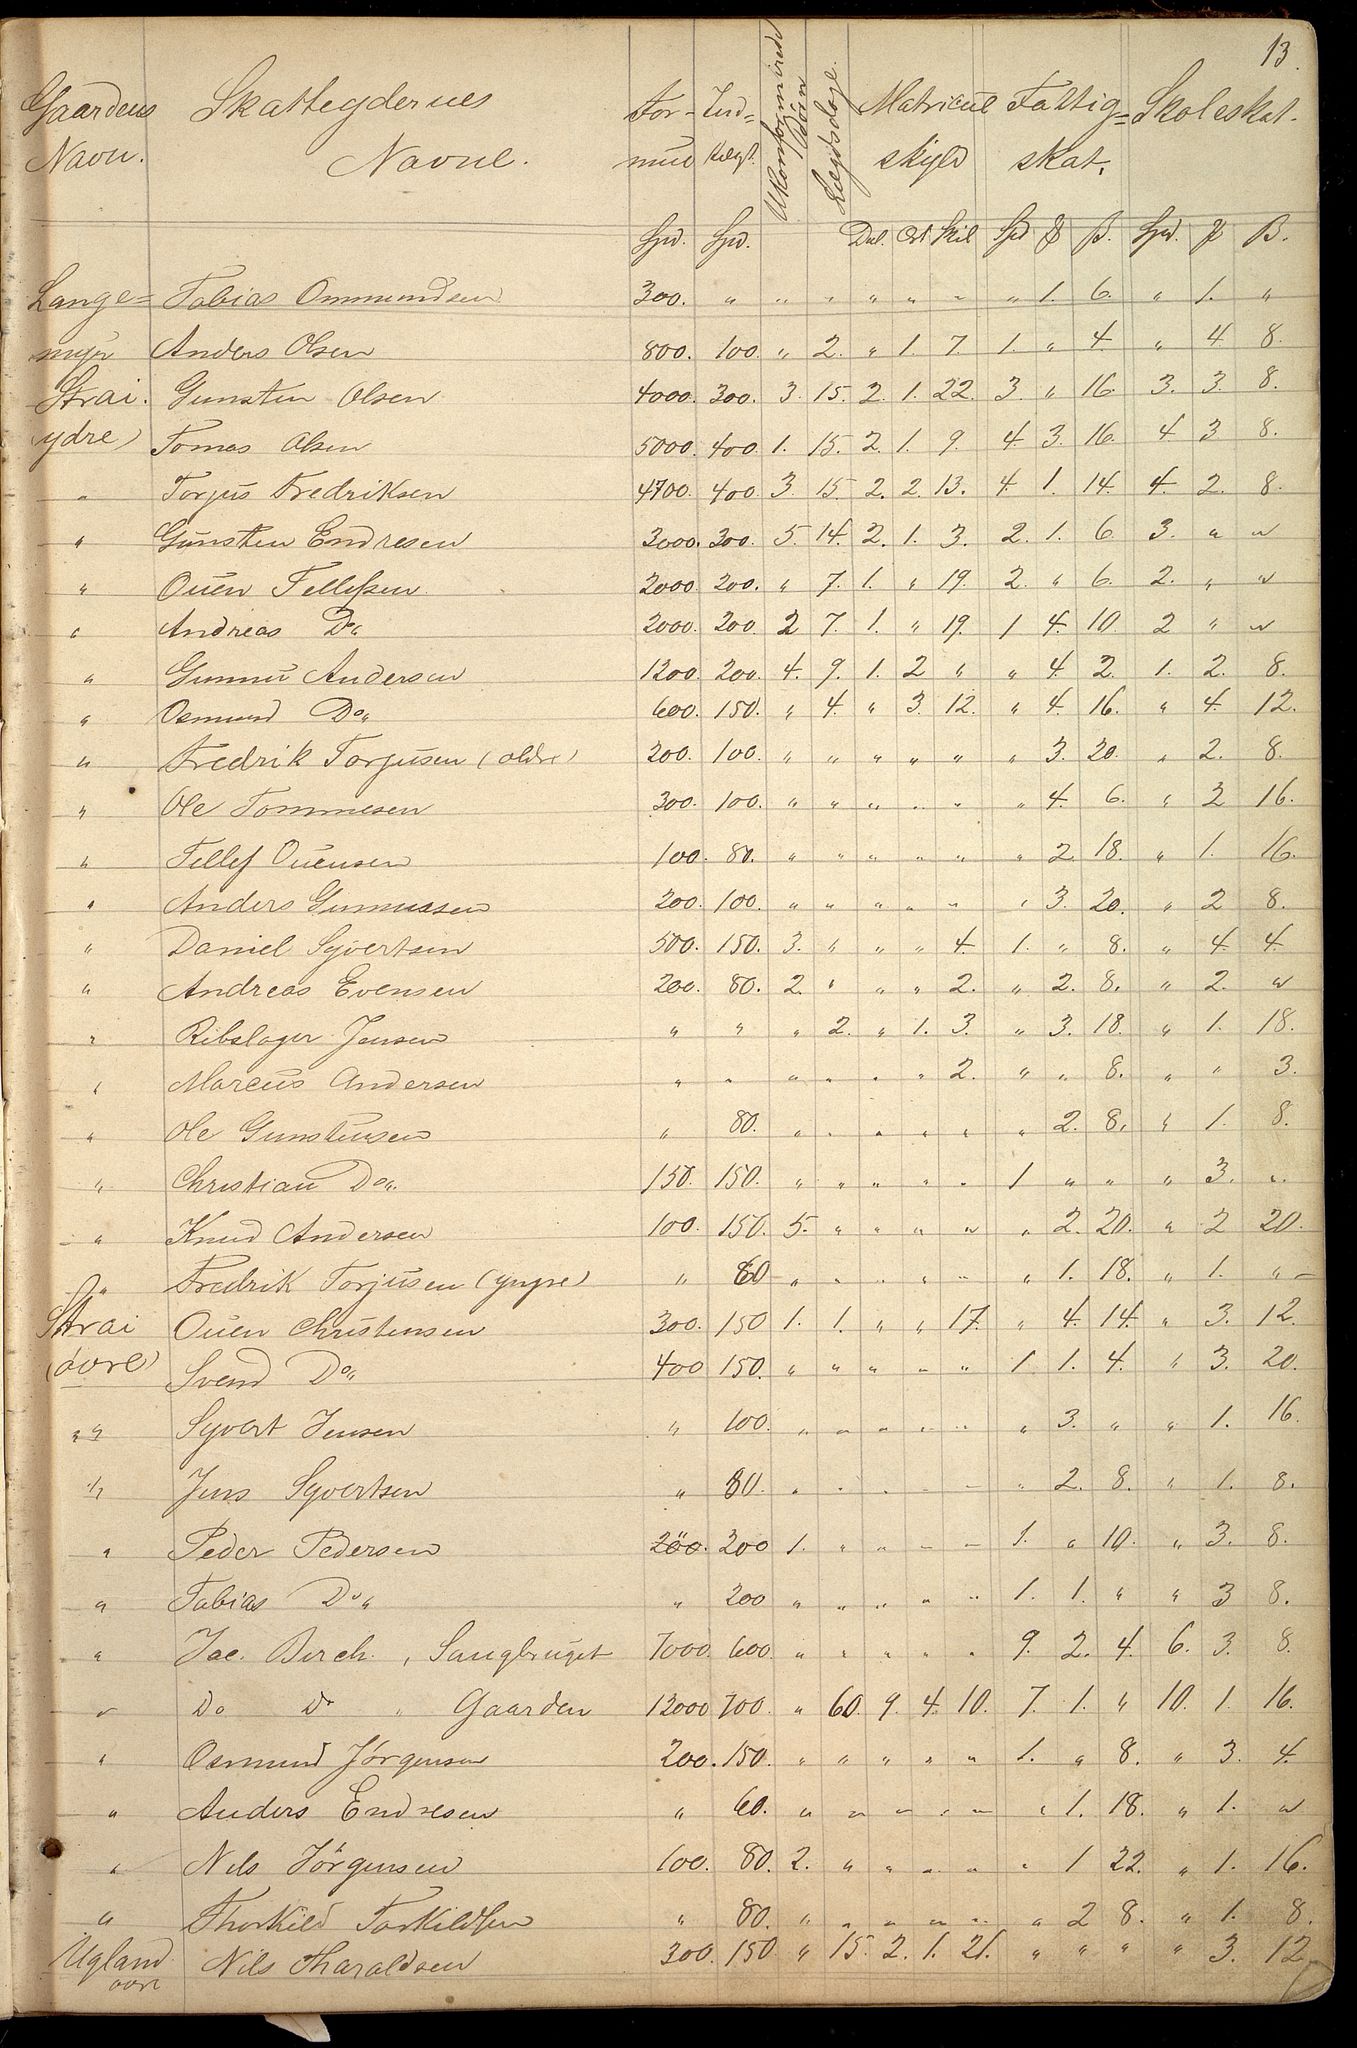 13.
Gaardens Skatteydernes For- Ind- Ukonfirmirede Børn Lægdsdage. Matricul Fattig= Skoleskat.
Navn. Navne. mue tægt. skyld skat.
Spd. Spd. Dal. Ort Skil Spd ₰ β. Spd. ₰ β.
Lange= Tobias Ommundsen 300. " " " " " " " 1. 6. " 1. "
myr Anders Olsen 800. 100. " 2. " 1. 7. 1. " 4. " 4. 8.
Strai. Gunsten Olsen 4000. 300. 3. 15. 2. 1. 22. 3. " 16. 3. 3. 8.
(ydre) Tomas Olsen 5000. 400. 1. 15. 2. 1. 9. 4. 3. 16. 4. 3. 8.
" Torjus Fredriksen 4700. 400. 3. 15. 2. 2. 13. 4. 1. 14. 4. 2. 8.
" Gunsten Endresen 3000. 300. 5. 14. 2. 1. 3. 2. 1. 6. 3. " "
" Ouen Tellefsen 2000. 200. " 7. 1. " 19. 2. " 6. 2. " "
" Andreas Do" 2000. 200. 2 7. 1. " 19. 1 4. 10. 2 " "
" Gunnu Andersen 1200. 200. 4. 9. 1. 2 " " 4. 2. 1. 2. 8.
" Osmund Do" 600. 150. " 4. " 3. 12. " 4. 16. " 4. 12.
" Fredrik Torjusen (oldre) 200. 100. " " " " " " 3. 20. " 2. 8.
" Ole Tommesen 300. 100. " " " " " " 4. 6. " 2 16.
" Tellef Ouensen 100. 80. " " " " " " 2. 18. " 1. 16.
" Anders Gunnussen 200. 100. " " " " " " 3. 20. " 2 8.
" Daniel Syvertsen 500. 150. 3. " " " 4. 1. " 8. " 4. 4.
" Andreas Evensen 200. 80. 2. " " " 2. " 2. 8. " 2. "
" Ribslager Jensen " " " 2. " 1. 3. " 3. 18. " 1. 18.
" Marcus Andersen " " " " " " 2. " " 8. " " 3.
" Ole Gunstensen " 80. " " " " " " 2. 8. " 1. 8.
" Christian Do". 150. 150. " " " " " 1 " " " 3. "
" Knud Andersen 100. 150. 5. " " " " " 2. 20. " 2 20.
" Fredrik Torjusen (yngre) " 60 " " " " " " 1. 18. " 1. "
Strai Ouen Christensen 300. 150 1. 1. " " 17. " 4. 14. " 3. 12.
(øvre) Svend Do" 400 150. " " " " " 1 1. 4. " 3. 20.
" " Syvert Jensen " 100. " " " " " " 3. " " 1. 16.
" Jens Syvertsen " 80. " " " " " " 2. 8. " 1. 8.
" Peder Pedersen 200. 200 1. " " " " 1. " 10. " 3. 8.
" Tobias Do" " 200 " " " " " 1. 1. " " 3 8.
" Jac. Berch. , Saugbruget 7000. 600. " " " " " 9. 2. 4. 6. 3. 8.
" Do Do " Gaarden 12000 700. " 60. 9. 4. 10. 7. 1. " 10. 1. 16.
" Osmund Jørgensen 200. 150. " " " " " 1. " 8. " 3. 4.
" Anders Endresen " 60. " " " " " " 1. 18. " 1. "
" Nils Jörgensen 100. 80. 2. " " " " " 1 22. " 1. 16.
" Thorkild Torkildsen " 80. " " " " " " 2 8. " 1. 8.
Ugland Nils Haraldsen 300. 150 " 15. 2. 1. 21. " " " " 3. 12